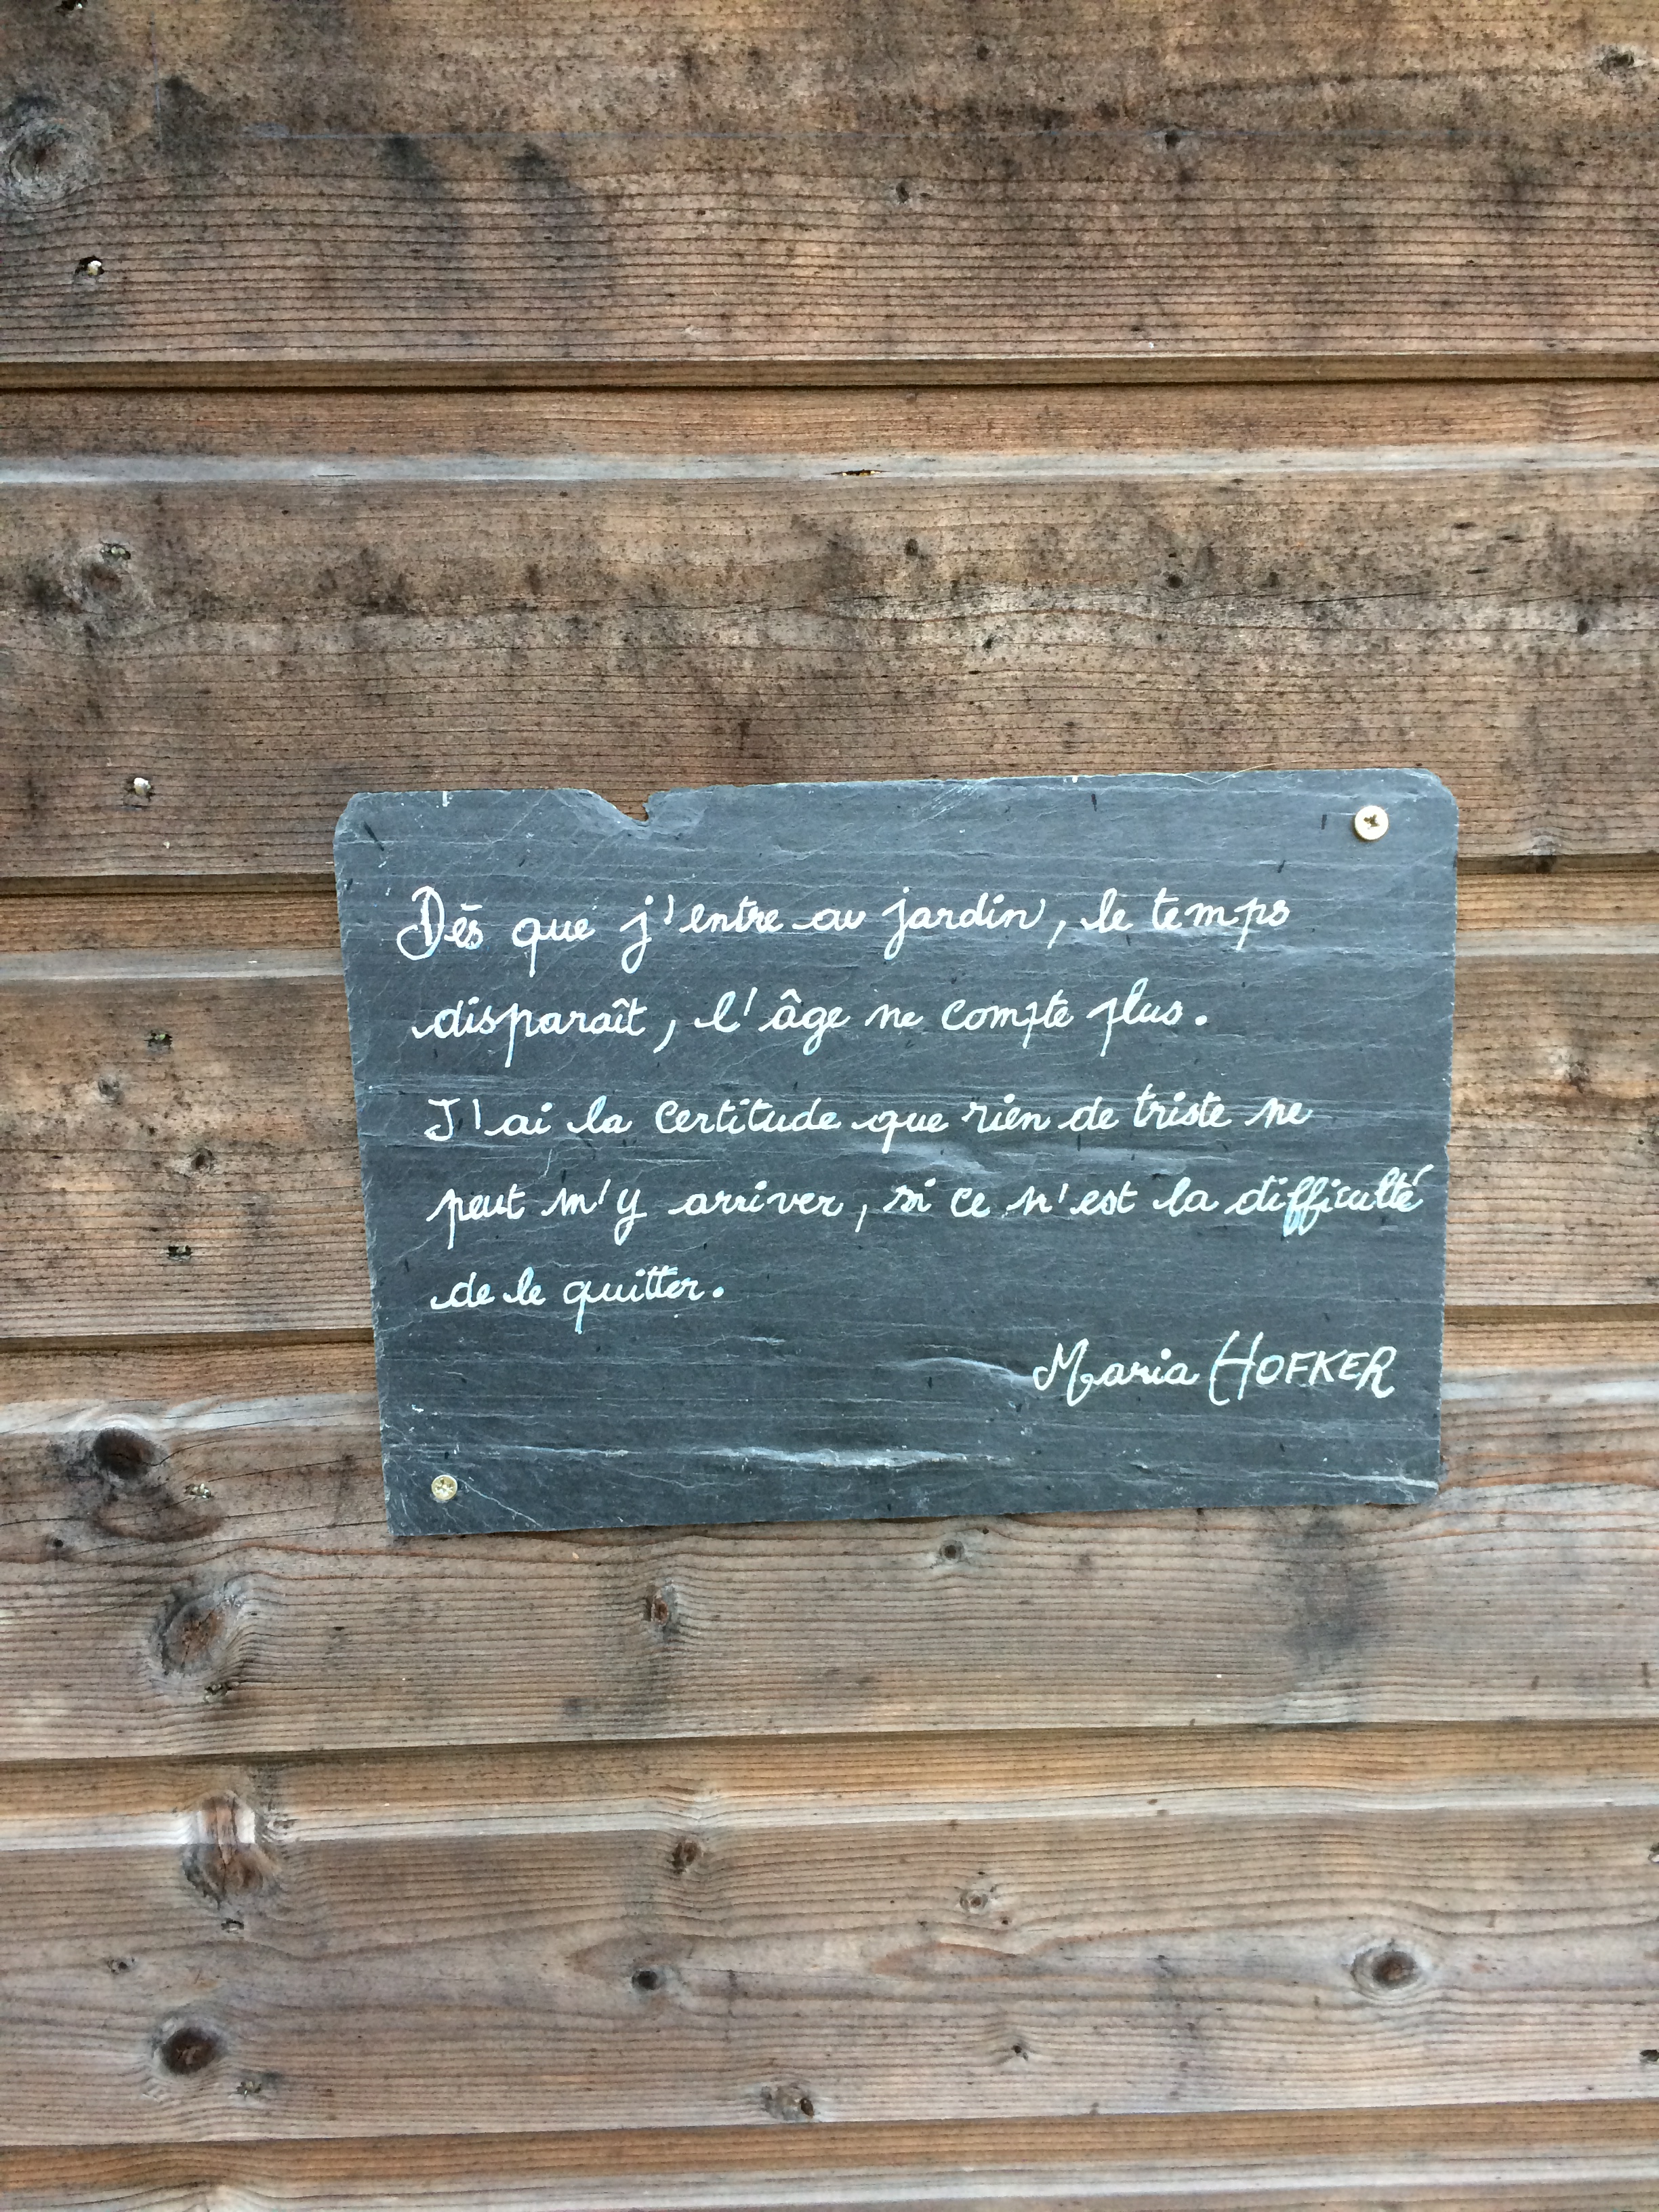 Dès que j'entre au jardin, le temps
disparaît, l'âge ne compte plus.
J'ai la certitude que rien de triste ne
peut m'y arriver, si ce n'est la difficulté
de le quitter.
Maria HOFKER